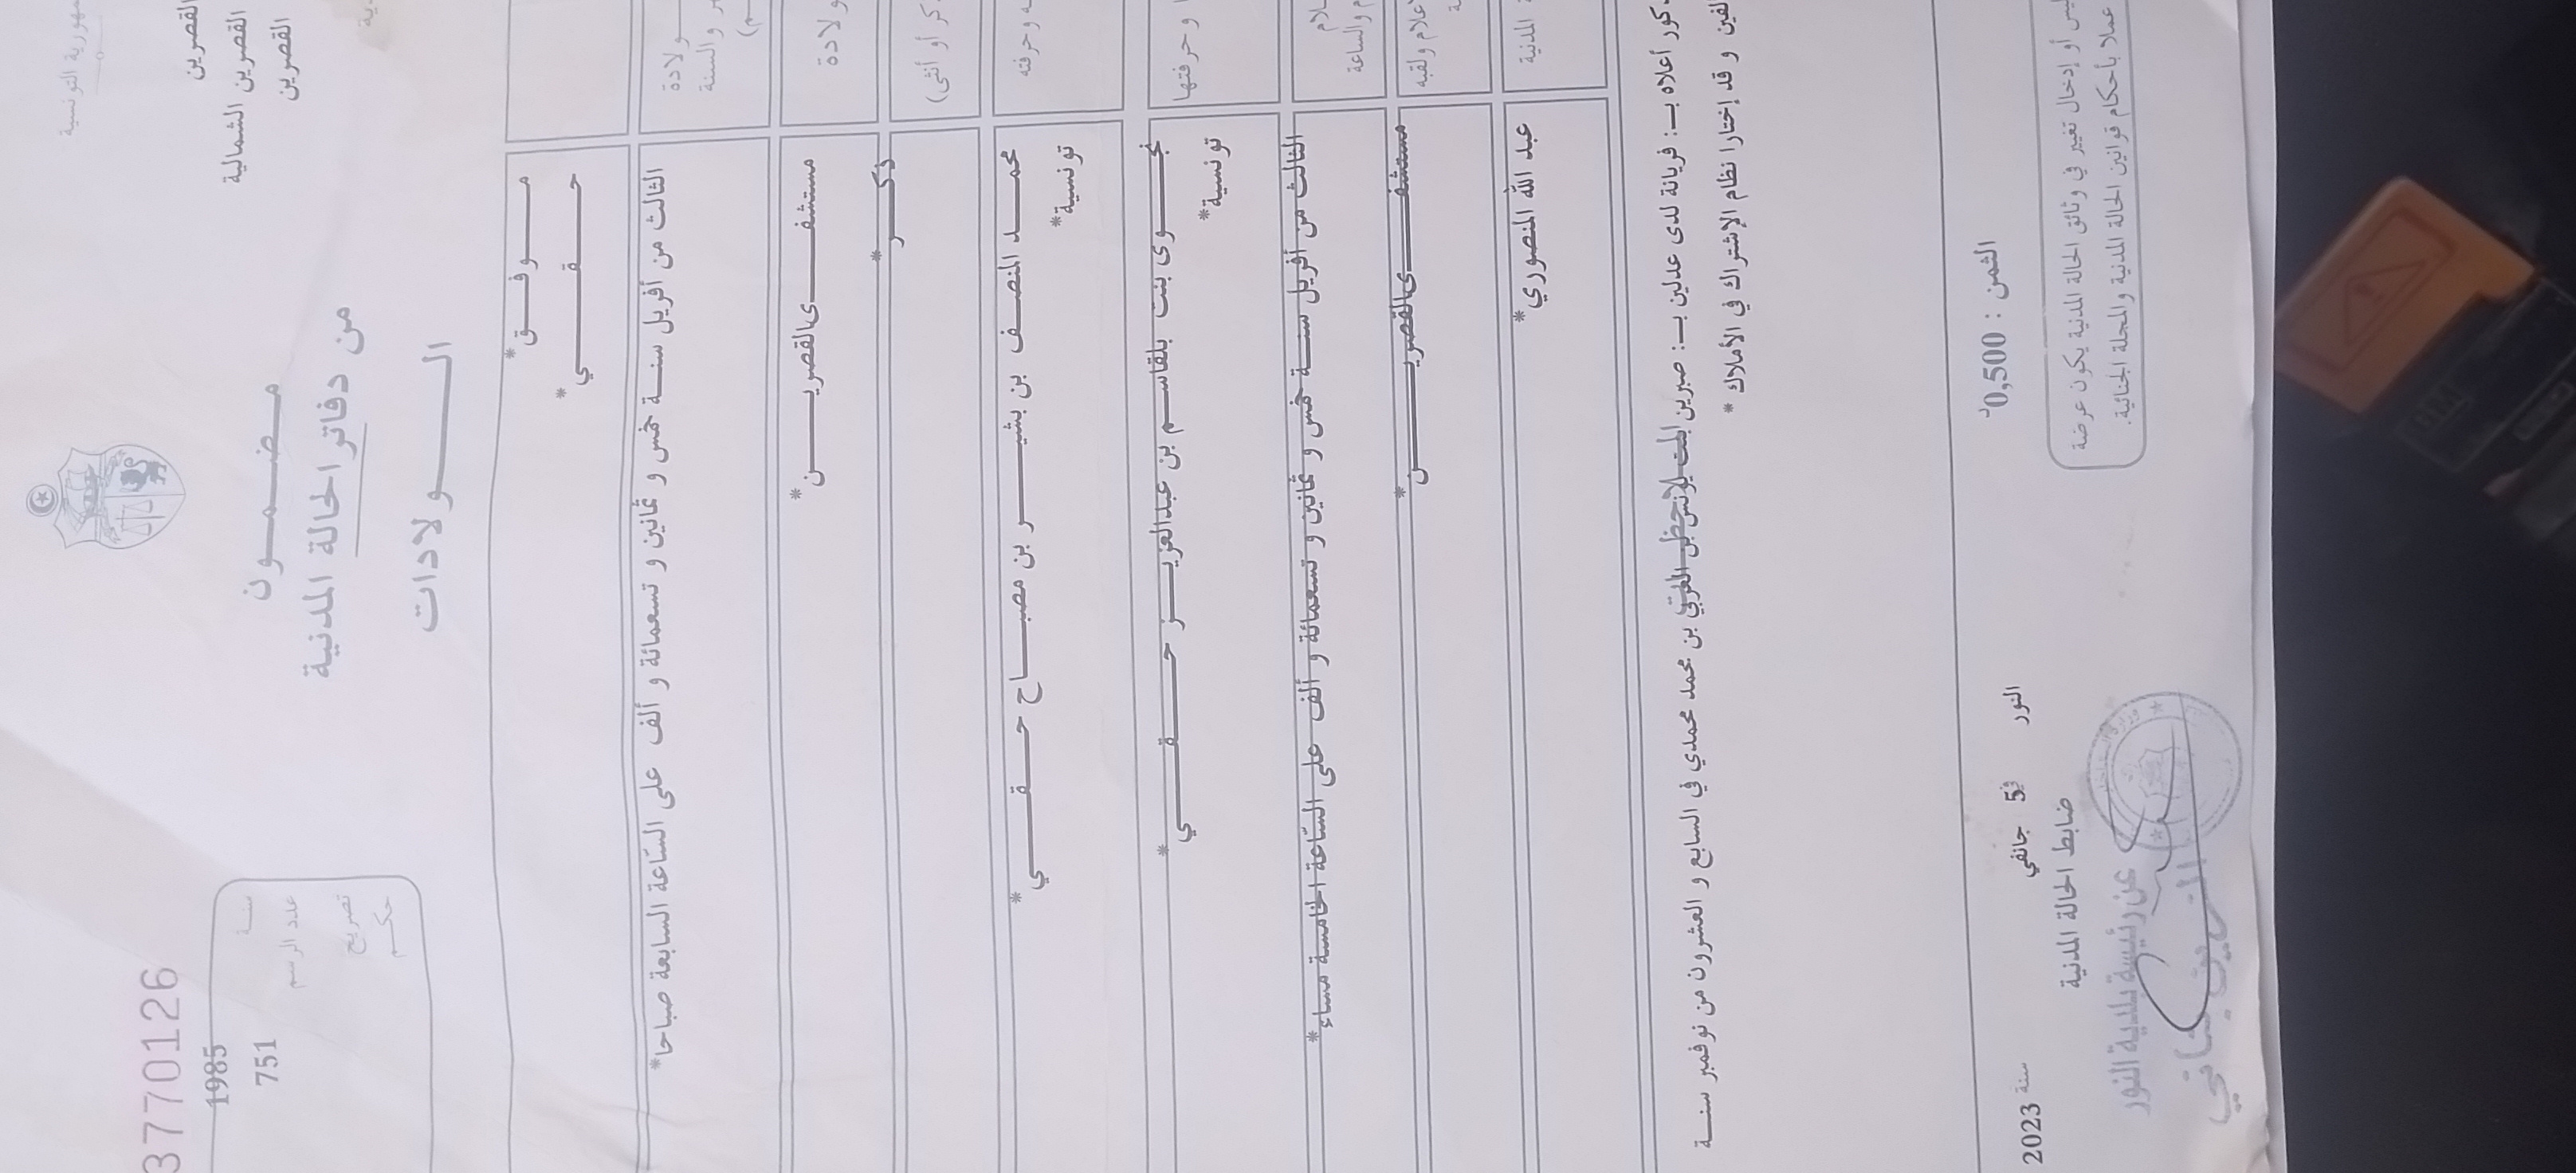 القصرين
القصرين الشمالية
القصرين
مضمون
من دفاتر الحالة المدنية
الولادات
3770126
سنة 1985
عدد الرسم 751
تصريح
حكم
موفق*
حقي*
ولادة
والسنة
الثالث من أفريل سنة خمس و ثمانين و تسعمائة و ألف على السّاعة السابعة صباحا*
ولادة
مستشفى القصرين*
كر أو أنثى)
ذكر*
ه وحرفته
محمد المنصف بن بشير بن مصباح حقي*
تونسية*
ا وحرفتها
نجوى بنت بلقاسم بن عبدالعزيز حقي*
تونسية*
والساعة
الثالث من أفريل سنة خمس و ثمانين و تسعمائة و ألف على السّاعة الخامسة مساء*
علام ولقبه
مستشفى القصرين*
المدنية
عبد الله المنصوري*
كور أعلاه بـ: فريانة لدى عدلين بـ: صبرين بن محمد محمدي في السابع و العشرون من نوفمبر سنة
لفين و قد إختارا نظام الإشتراك في الأملاك *
الثمن : 0,500
النور في 5 جانفي سنة 2023
ضابط الحالة المدنية
عن رئيسة بلدية النور
أو إدخال تغيير في وثائق الحالة المدنية يكون عرضة
عملا بأحكام قوانين الحالة المدنية والمجلة الجنائية.